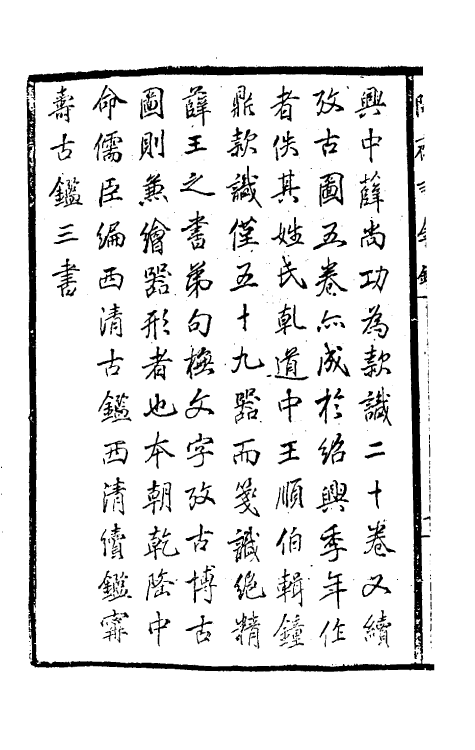 興中薛尚功為款識二十卷又續
攷古圖五卷亦成於紹興季年作
者佚其姓氏乹道中王順伯輯鐘
鼎款識僅五十九器而箋識絶精
薛王之書弟句橅文字攷古博古
圖則兼繪器形者也本朝乾隆中
命儒臣編西清古鑑西清續鑑寗
壽古鑑三書